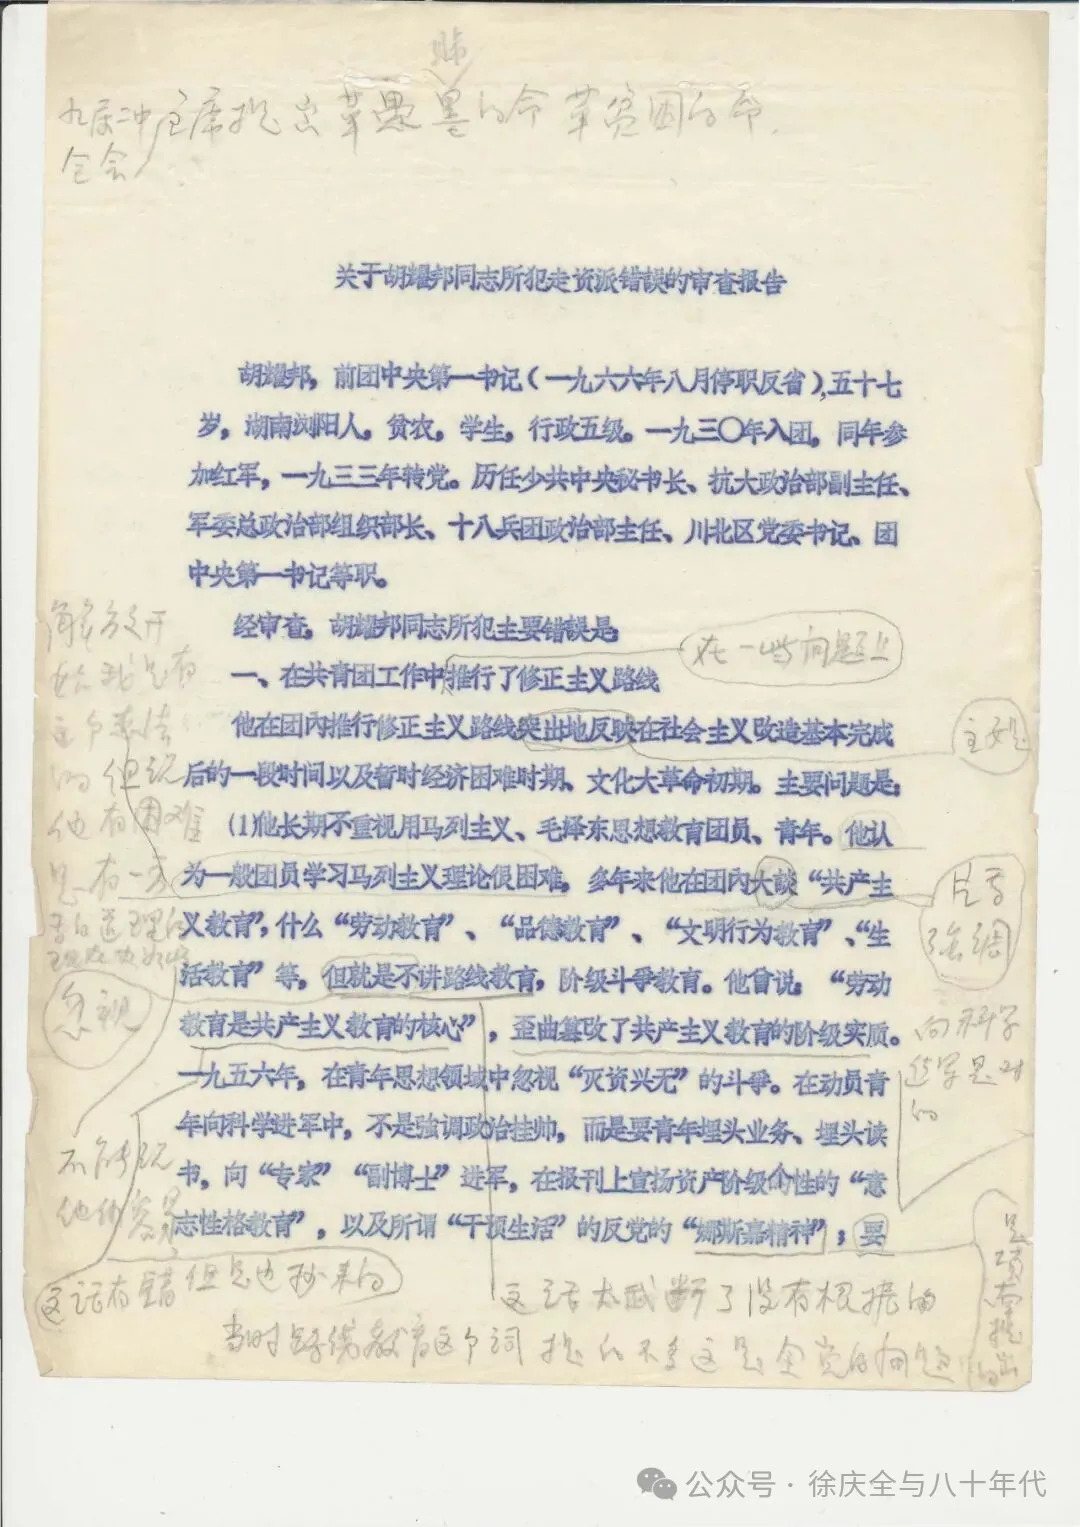 九届二中主席提出革愚
的命革贫困的命
全会
关于胡耀邦同志所犯走资派错誤的审查报告
胡耀邦，前团中央第一书记（一九六六年八月停职反省），五十七
岁，湖南浏阳人，贫农，学生，行政五级。一九三〇年入团，同年参
加红军，一九三三年转党。历任少共中央秘书长、抗大政治部副主任、
军委总政治部组织部长、十八兵团政治部主任、川北区党委书记、团
中央第一书记等职。
经审查，胡耀邦同志所犯主要错誤是：
在一些问题上
一、在共青团工作中推行了修正主义路线
他在团內推行修正主义路线突出地反映在社会主义改造基本完成
主要是
后的一段时间以及暂时经济困难时期、文化大革命初期。主要问题是：
⑴他长期不重视用马列主义、毛泽东思想教育团员、青年。他认
为一般团员学习马列主义理论很困难，多年来他在团內大談“共产主
片面
强调
义教育”，什么“劳动教育”、“品德教育”、“文明行为教育”、“生
活教育”等，但就是不讲路线教育，阶级斗爭教育。他曾说：“劳动
教育是共产主义教育的核心”，歪曲篡改了共产主义教育的阶级实质。
一九五六年，在青年思想领域中忽视“灭资兴无”的斗爭。在动员青
年向科学进军中，不是強调政治挂帅，而是要青年埋头业务、埋头读
书，向“专家”“副博士”进军，在报刊上宣扬资产阶级个性的“意
志性格教育”，以及所谓“干预生活”的反党的“娜斯嘉精神”；要
解放开
这个想法
的但说
他有困难
是有一方
面的道理的
忽视
不能说
向科学
进军是对
的
是项南提出
的
这话有错但是也抄来的
这话太武断了没有根据的
当时路线教育这个词提的不多这是全党的问题
公众号·徐庆全与八十年代